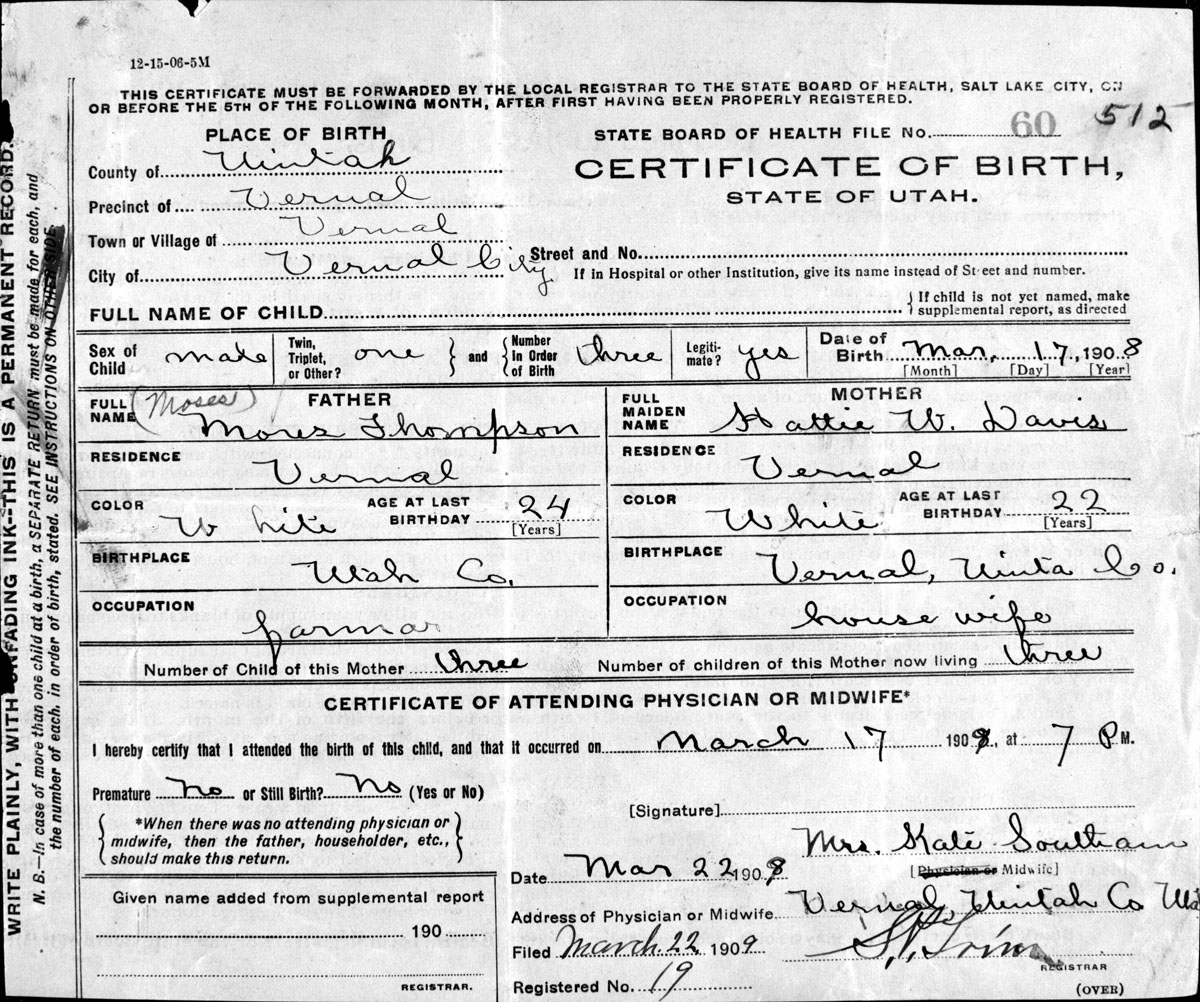 12-15-06-5M
THIS CERTIFICATE MUST BE FORWARDED BY THE LOCAL REGISTRAR TO THE STATE BOARD OF HEALTH, SALT LAKE CITY, ON
OR BEFORE THE 5TH OF THE FOLLOWING MONTH, AFTER FIRST HAVING BEEN PROPERLY REGISTERED.
PLACE OF BIRTH
STATE BOARD OF HEALTH FILE No. 60 512
County of Uintah
CERTIFICATE OF BIRTH,
STATE OF UTAH.
Precinct of Vernal
Town or Village of Vernal
City of Vernal City
Street and No.
If in Hospital or other Institution, give its name instead of Street and number.
FULL NAME OF CHILD
{ If child is not yet named, make
supplemental report, as directed
Sex of Child male
Twin, Triplet, or Other? one } and { Number in Order of Birth three
Legiti-mate? yes
Date of Birth Mar, 17, 1908
[Month] [Day] [Year]
FATHER
FULL NAME (Moses)
Mores Thompson
RESIDENCE Vernal
COLOR White
AGE AT LAST BIRTHDAY 24 [Years]
BIRTHPLACE Utah Co.
OCCUPATION farmar
MOTHER
FULL MAIDEN NAME Hattie W. Davis
RESIDENCE Vernal
COLOR White
AGE AT LAST BIRTHDAY 22 [Years]
BIRTHPLACE Vernal, Uinta Co.
OCCUPATION house wife
Number of Child of this Mother three Number of children of this Mother now living three
CERTIFICATE OF ATTENDING PHYSICIAN OR MIDWIFE*
I hereby certify that I attended the birth of this child, and that it occurred on March 17 1908, at 7 P M.
Premature No or Still Birth? No (Yes or No)
{ *When there was no attending physician or
midwife, then the father, householder, etc.,
should make this return. }
[Signature]
Mrs. Kate Southam
[Physician or Midwife]
Date Mar 22 1908
Address of Physician or Midwife Vernal, Uintah Co
Filed March 22 1909
REGISTRAR
Registered No. 19
(OVER)
Given name added from supplemental report
190
REGISTRAR.
WRITE PLAINLY, WITH UNFADING INK--THIS IS A PERMANENT RECORD.
N. B.—In case of more than one child at a birth, a SEPARATE RETURN must be made for each, and
the number of each, in order of birth, stated. SEE INSTRUCTIONS ON OTHER SIDE.